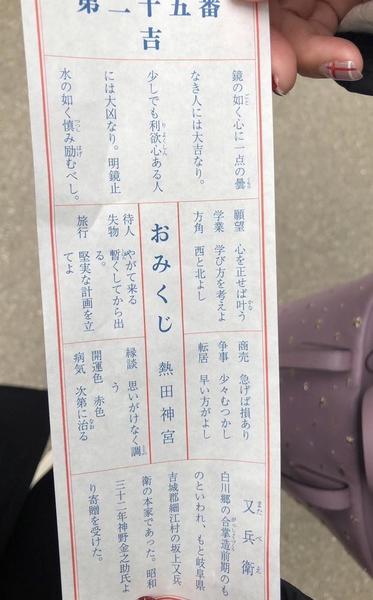 第二十五番
吉
鏡の如く心に一点の曇
なき人には大吉なり。
少しでも利欲心ある人
には大凶なり。明鏡止
水の如く慎み励むべし。
願望 心を正せば叶う
学業 学び方を考えよ
方角 西と北よし
おみくじ 熱田神宮
待人 やがて来る
失物 暫くしてから出
る。
旅行 堅実な計画を立
てよ
商売 急げば損あり
争事 少々むつかし
転居 早い方がよし
縁談 思いがけなく調
う
開運色 赤色
病気 次第に治る
又兵衛
白川郷の合掌造前期のも
のといわれ、もと岐阜県
吉城郡細江村の坂上又兵
衛の本家であった。昭和
三十二年神野金之助氏よ
り寄贈を受けた。